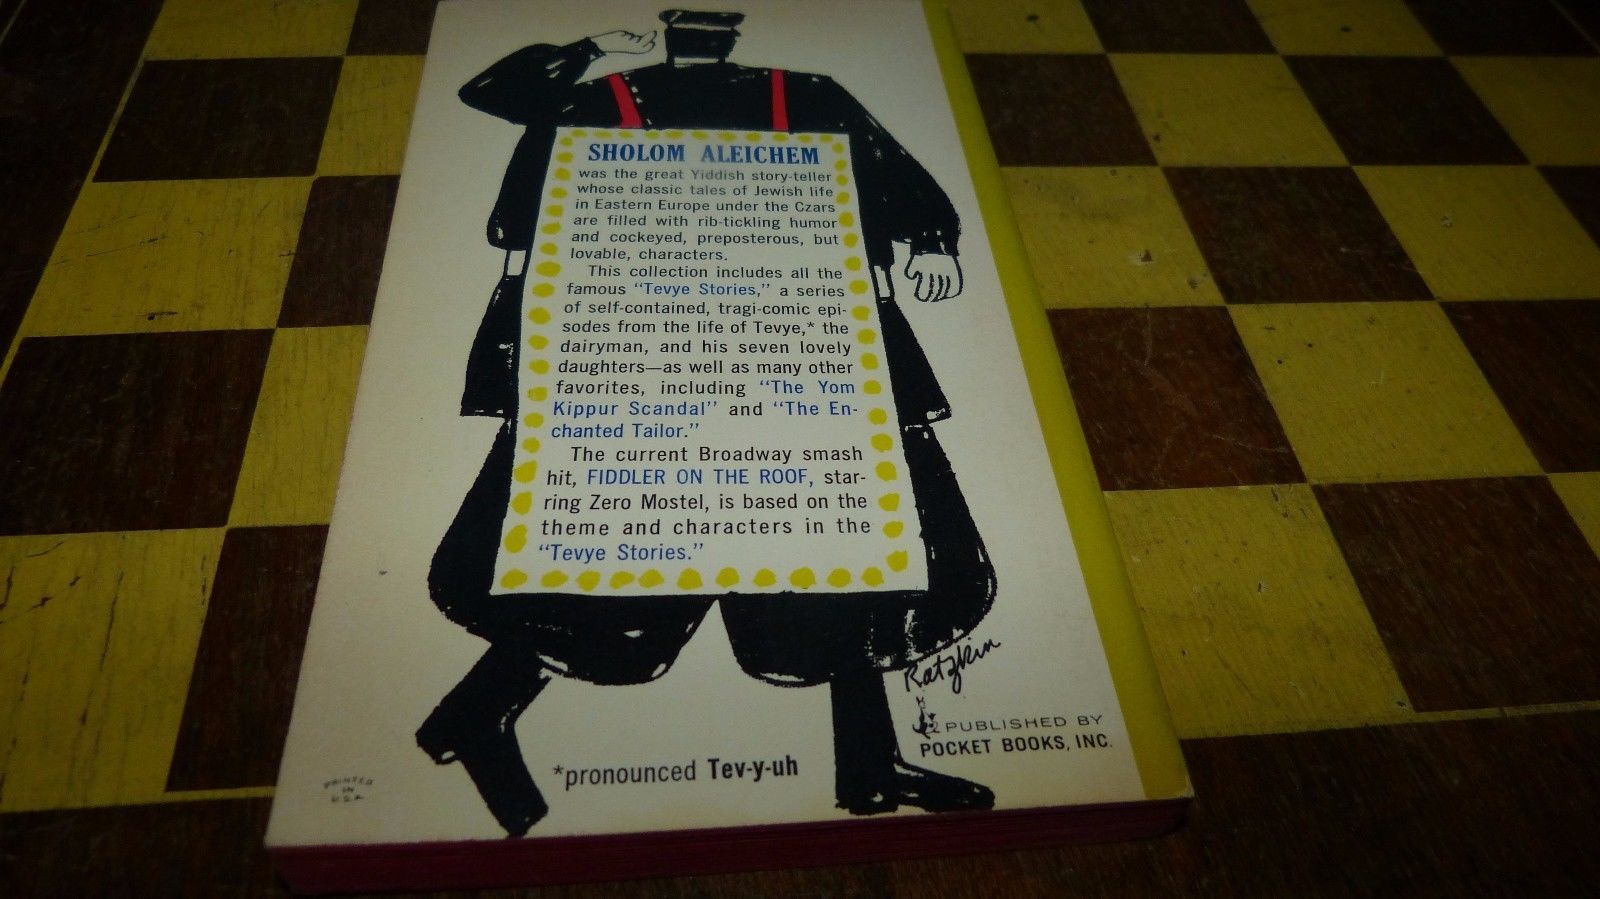 SHOLOM ALEICHEM
was the great Yiddish story-teller
whose classic tales of Jewish life
in Eastern Europe under the Czars
are filled with rib-tickling humor
and cockeyed, preposterous, but
lovable, characters.
This collection includes all the
famous “Tevye Stories,” a series
of self-contained, tragi-comic epi-
sodes from the life of Tevye,* the
dairyman, and his seven lovely
daughters—as well as many other
favorites, including “The Yom
Kippur Scandal” and “The En-
chanted Tailor.”
The current Broadway smash
hit, FIDDLER ON THE ROOF, star-
ring Zero Mostel, is based on the
theme and characters in the
“Tevye Stories.”
Katzkin
PUBLISHED BY
POCKET BOOKS, INC.
*pronounced Tev-y-uh
PRINTED
IN
U.S.A.